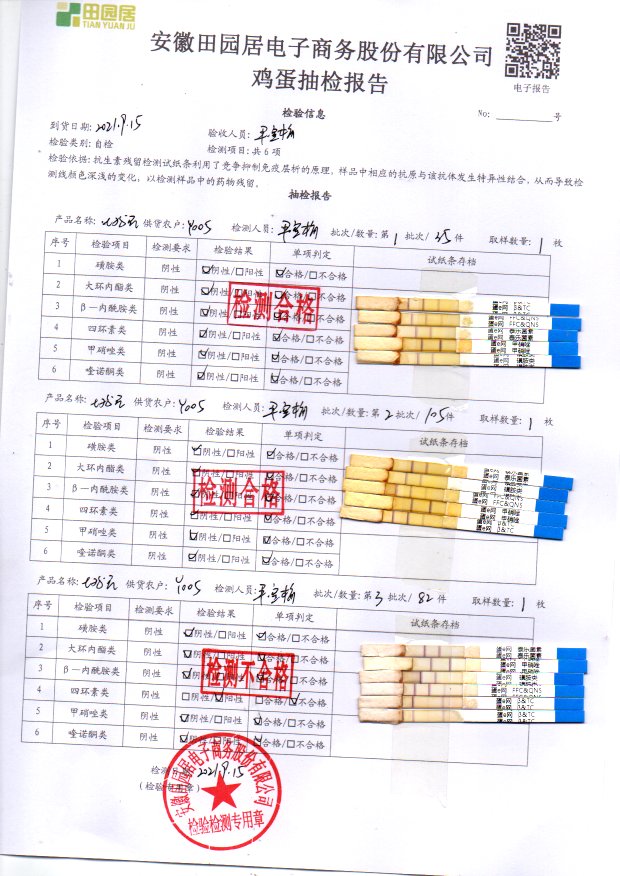 田园居
TIAN YUAN JU
安徽田园居电子商务股份有限公司
鸡蛋抽检报告
电子报告
检验信息
No: 号
到货日期: 2021.9.15 验收人员:
检验类别: 自检 检测项目: 共 6 项
检验依据: 抗生素残留检测试纸条利用了竞争抑制免疫层析的原理, 样品中相应的抗原与该抗体发生特异性结合, 从而导致检
测线颜色深浅的变化, 以检测样品中的药物残留。
抽检报告
产品名称: 供货农户: Y005 检测人员: 批次/数量: 第 1 批次/ 35 件 取样数量: 1 枚
序号 检验项目 检测要求 检验结果 单项判定 试纸条存档
1 磺胺类 阴性 ☑阴性/☐阳性 ☑合格/☐不合格
2 大环内酯类 阴性 ☑阴性/☐阳性 ☑合格/☐不合格
3 β—内酰胺类 阴性 ☑阴性/☐阳性 ☑合格/☐不合格
4 四环素类 阴性 ☑阴性/☐阳性 ☑合格/☐不合格
5 甲硝唑类 阴性 ☑阴性/☐阳性 ☑合格/☐不合格
6 喹诺酮类 阴性 ☑阴性/☐阳性 ☑合格/☐不合格
检测合格
蛋e网 B&TC
蛋e网 FFC&QNS
蛋e网 泰乐菌素
蛋e网 泰乐菌素
蛋e网 甲硝唑
蛋e网 磺胺类
产品名称: 供货农户: Y005 检测人员: 批次/数量: 第 2 批次/ 105 件 取样数量: 1 枚
序号 检验项目 检测要求 检验结果 单项判定 试纸条存档
1 磺胺类 阴性 ☑阴性/☐阳性 ☑合格/☐不合格
2 大环内酯类 阴性 ☑阴性/☐阳性 ☑合格/☐不合格
3 β—内酰胺类 阴性 ☑阴性/☐阳性 ☑合格/☐不合格
4 四环素类 阴性 ☑阴性/☐阳性 ☑合格/☐不合格
5 甲硝唑类 阴性 ☑阴性/☐阳性 ☑合格/☐不合格
6 喹诺酮类 阴性 ☑阴性/☐阳性 ☑合格/☐不合格
检测合格
蛋e网 泰乐菌素
蛋e网 磺胺类
蛋e网 FFC&QNS
蛋e网 甲硝唑
蛋e网 B&TC
产品名称: 供货农户: Y005 检测人员: 批次/数量: 第 3 批次/ 82 件 取样数量: 1 枚
序号 检验项目 检测要求 检验结果 单项判定 试纸条存档
1 磺胺类 阴性 ☑阴性/☐阳性 ☑合格/☐不合格
2 大环内酯类 阴性 ☑阴性/☐阳性 ☑合格/☐不合格
3 β—内酰胺类 阴性 ☑阴性/☐阳性 ☑合格/☐不合格
4 四环素类 阴性 ☐阴性/☑阳性 ☐合格/☑不合格
5 甲硝唑类 阴性 ☑阴性/☐阳性 ☑合格/☐不合格
6 喹诺酮类 阴性 ☑阴性/☐阳性 ☑合格/☐不合格
检测不合格
蛋e网 泰乐菌素
蛋e网 甲硝唑
蛋e网 磺胺类
蛋e网 FFC&QNS
蛋e网 B&TC
2021.9.15
安徽田园居电子商务股份有限公司
检验检测专用章